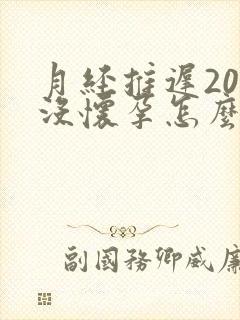 月经推遲20
没懷孕怎麼
副國務卿威廉